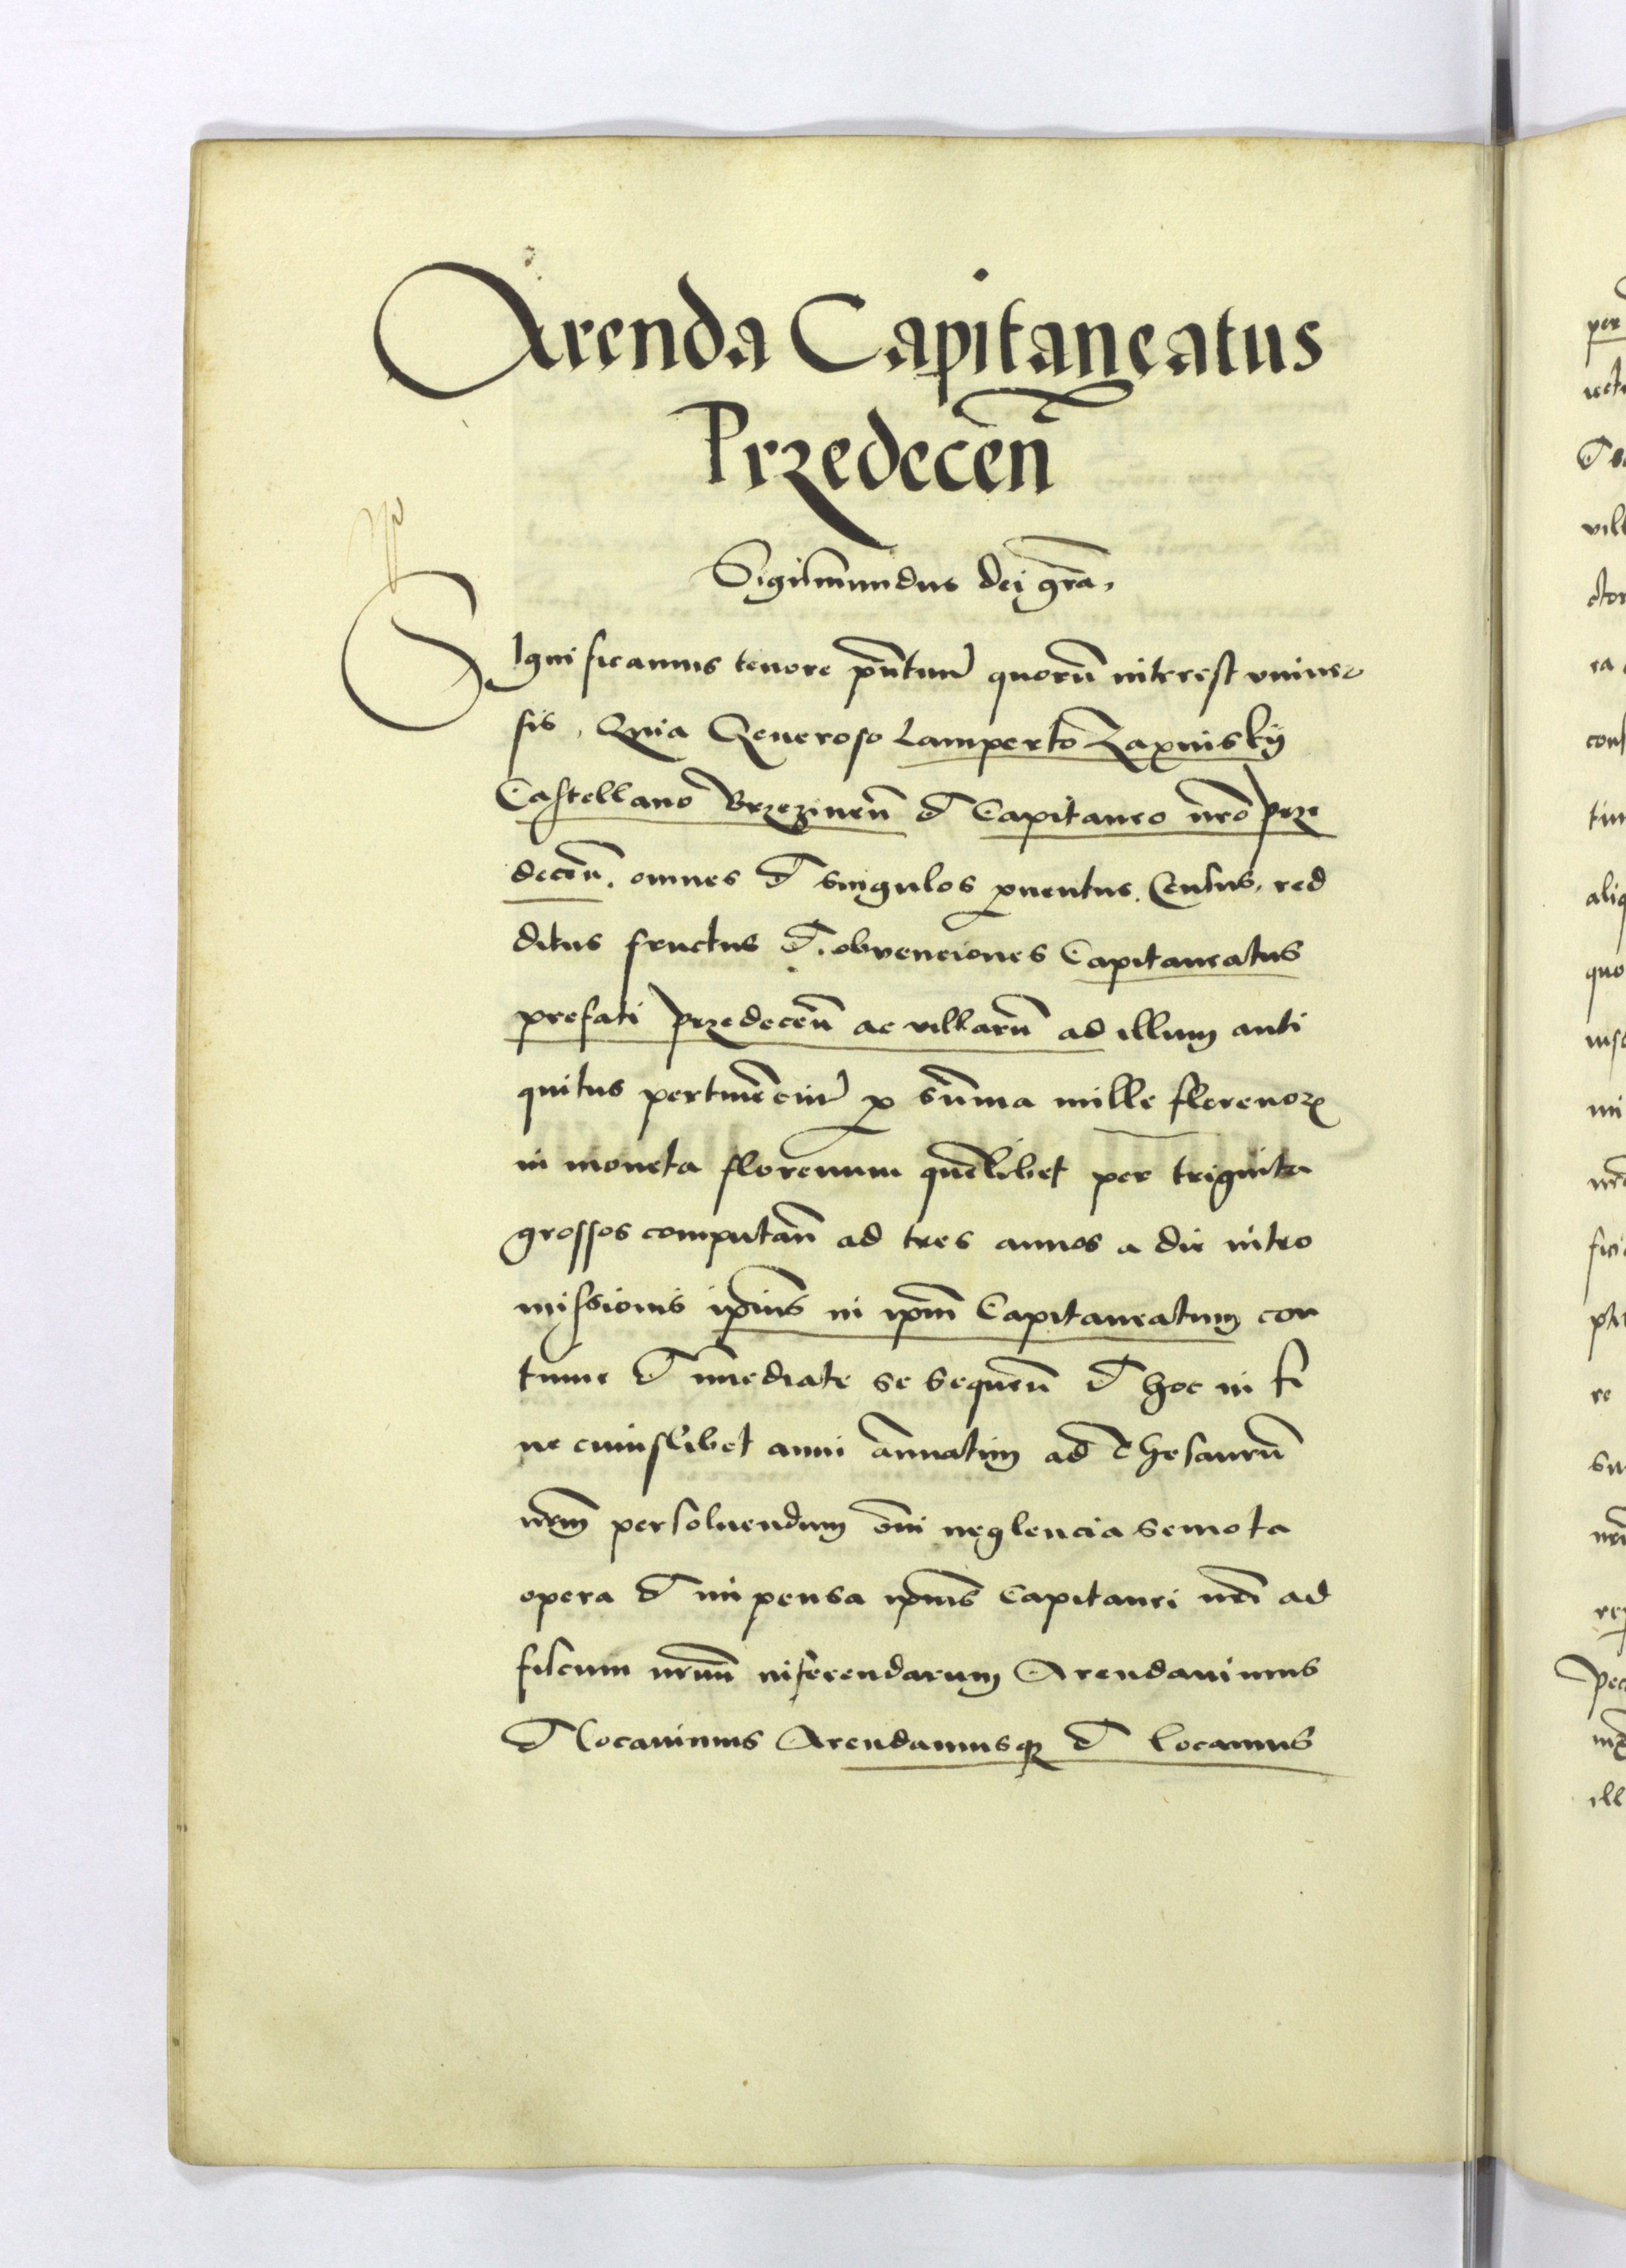 Arenda Capitaneatus
Przedecen̄
Sigismundus dei gr̄a.
Significamus tenore pn̄tium quorū interest vniuer
sis, Quia Generoso Lamperto Zaxinskÿ
Castellano Brzezinen̄ et Capitaneo nr̄o Prze
decen̄. omnes et singulos ꝓuentus. Census, red
ditus fructus et obvenciones Capitaneatus
prefati Przedecen̄ ac villarū ad illum anti
quitus pertinēciū ꝓ sūma mille florenoꝝ
in moneta florenum quēlibet per triginta
grossos computan̄ ad tres annos a die intro
missionis ip̄ius in ip̄m Capitaneatum con
tinue et īmediate se sequen̄ et hoc in fi
ne cuiuslibet anni annatim ad Thesaurū
nr̄m persoluendum om̄i neglencia semota
opera et impensa ip̄ius Capitanei nr̄i ad
fiscum nr̄um inferendarum Arendauimus
et Locauimus Arendamusqꝫ et locamus